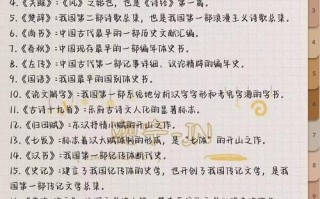 4.《关雎》:《风》之始也,也是《诗经》第一篇。
5.《楚辞》:我国第二部诗歌总集,也是我国第一部浪漫主义诗歌总集。
6.《尚书》:中国古代最早的一部历史文献汇编。
7.《春秋》:中国现存最早的一部编年体史书。
8.《左传》:中国古代第一部记事详细、议论精辟的编年史。
9.《国语》:我国最早的国别体史书。
10.《说文解字》:我国第一部系统地分析汉字字形和考究字源的字书。
11.《古诗十九首》:乐府古诗文人化的显著标志。
12.《归田赋》:东汉抒情小赋的开山之作。
13.《七发》:标志着汉大赋体制的形成,是“七体”的开山之作。
14.《汉书》:我国第一部纪传体断代史。
15.《史记》:建立了我国纪传体的史学,也开创了我国传记文学,是我
国第一部传记文学总集。
3
4
5
6
7
8
9